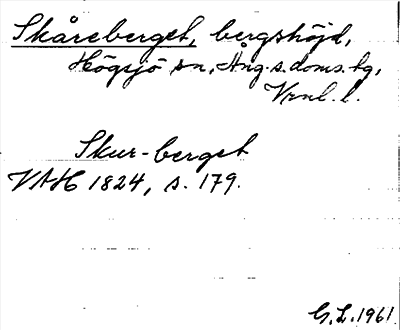 Skåreberget, bergshöjd,
Högsjö sn, Ång. s. doms. tg,
Vrnl. l.
Skur-berget
VAH 1824, s. 179.
G. L. 1961